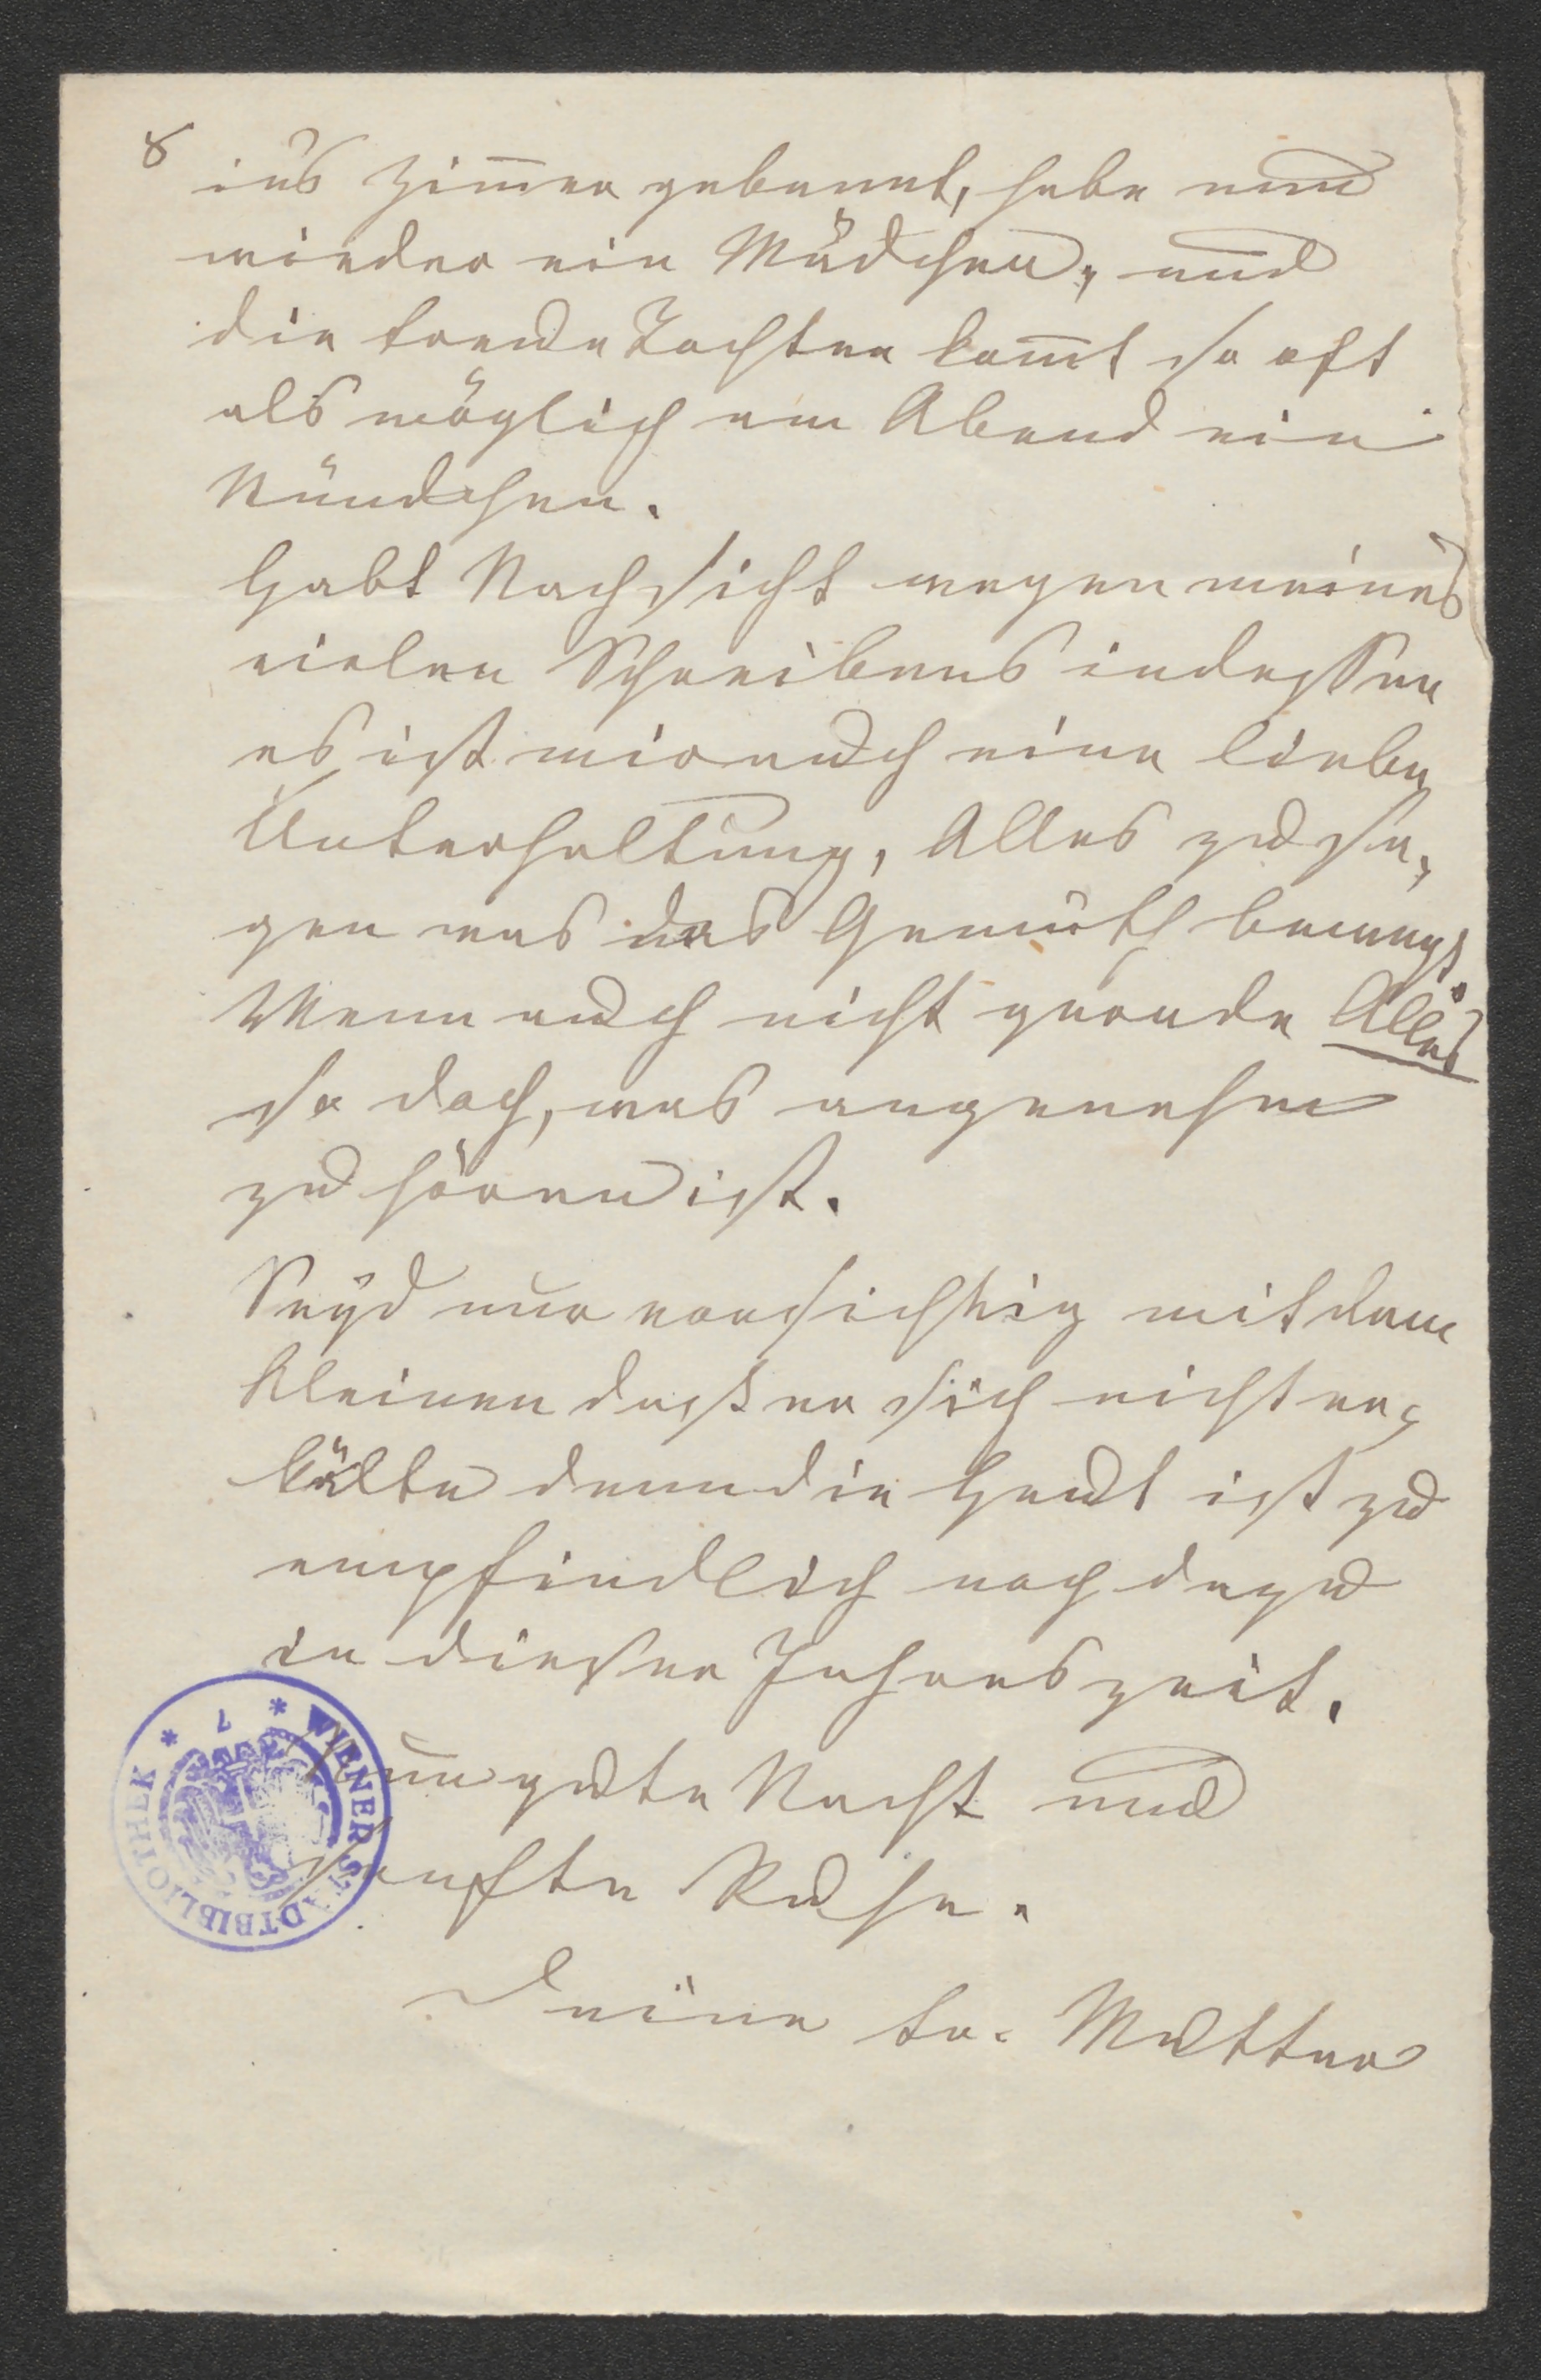 8
ins Zim̅er gebannt, habe nun
wieder ein Mädchen, und
die treue Tochter kom̅t so oft
als möglich am Abend ein
Stündchen.
Habt Nachsicht wegen meines
vielen Schreibens indessen
es ist mir auch eine liebe
Unterhaltung, Alles zu sa,,
gen was das Gemüth bewegt.
Wenn auch nicht gerade Alles
so doch, was angenehm
zu hören ist.
Seyd nur vorsichtig mit dem
Kleinen daß er sich nicht er,,
kälte denn die Haut ist zu
empfindlich noch dazu
in dieser Jahreszeit.
Nun gute Nacht und
sanfte Ruhe.
Deine tr. Mutter
* 7 * WIENER STADTBIBLIOTHEK